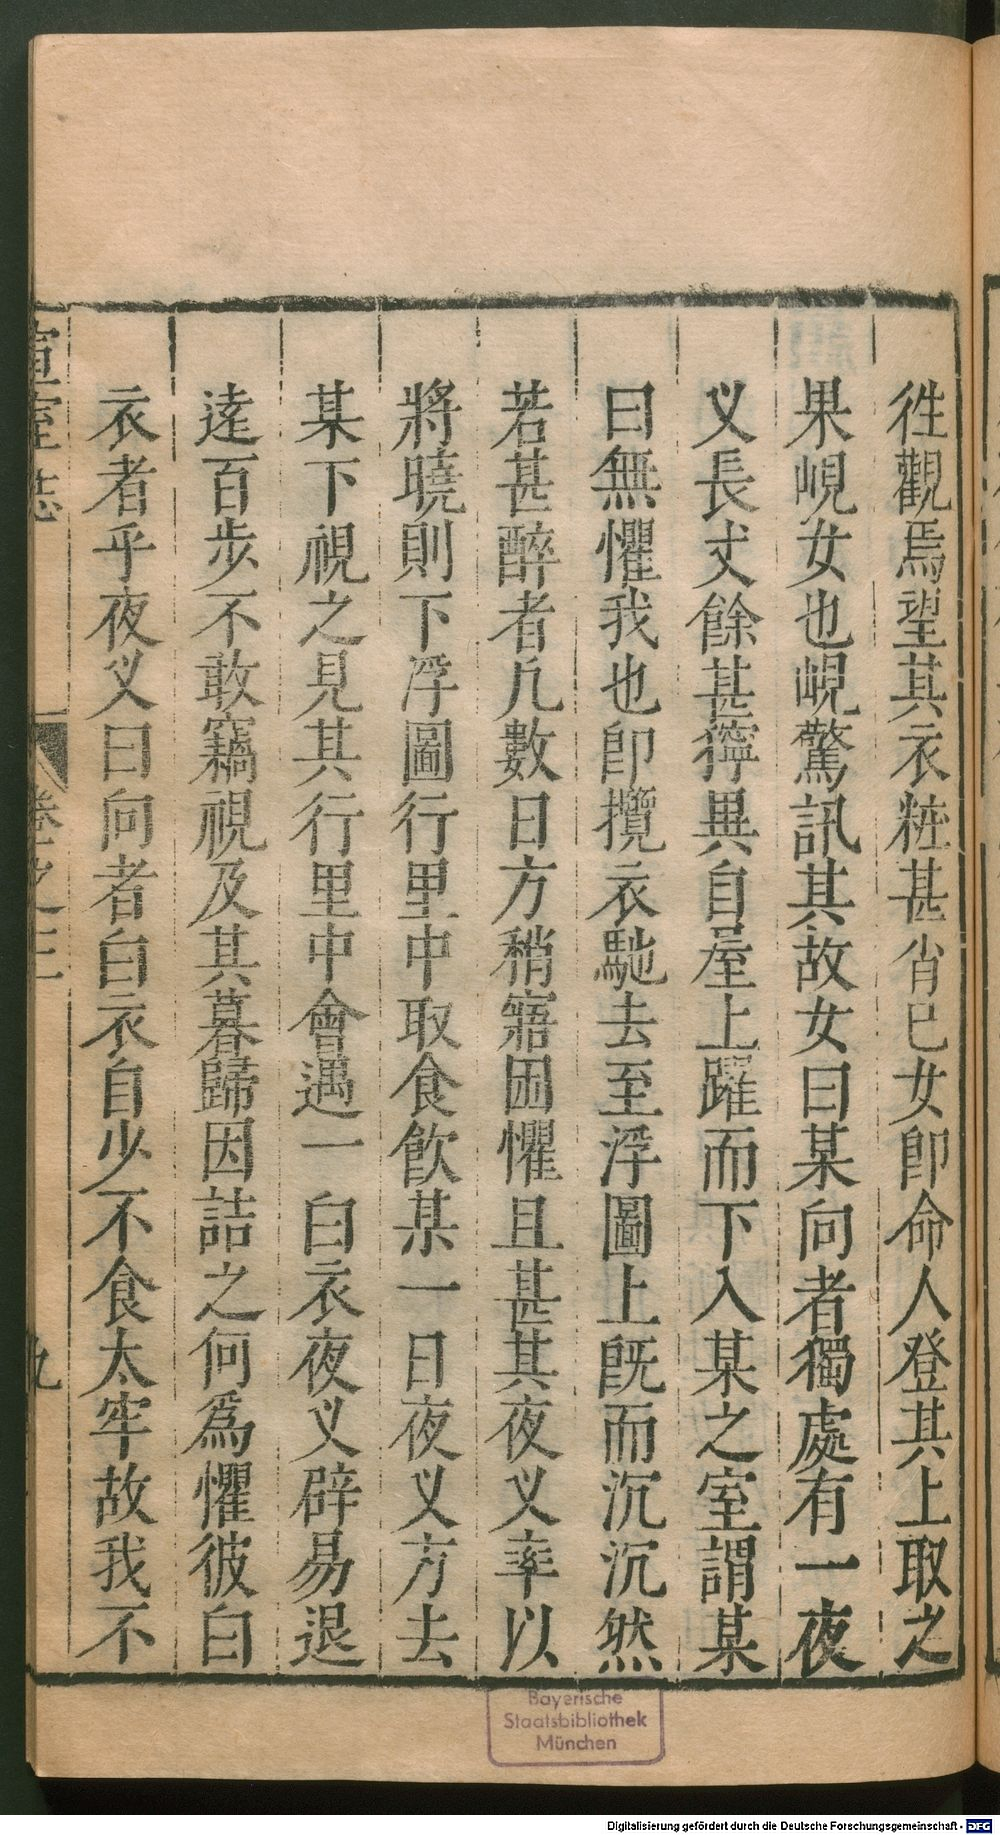 徃觀焉望其衣粧甚肖巳女卽命人登其上取之
果峴女也峴驚訊其故女曰某向者獨處有一夜
义長丈餘甚獰異自屋上躍而下入某之室謂某
曰無懼我也卽攬衣馳去至浮圖上旣而沉沉然
若甚醉者凢數日方稍寤困懼且甚其夜义率以
將曉則下浮圖行里中取食飮某一日夜义方去
某下視之見其行里中會遇一白衣夜义辟易退
逺百步不敢竊視及其暮歸因詰之何爲懼彼白
衣者乎夜义曰向者白衣自少不食太牢故我不
宣室志
卷之三
九
Bayerische
Staatsbibliothek
München
Digitalisierung gefördert durch die Deutsche Forschungsgemeinschaft - DFG